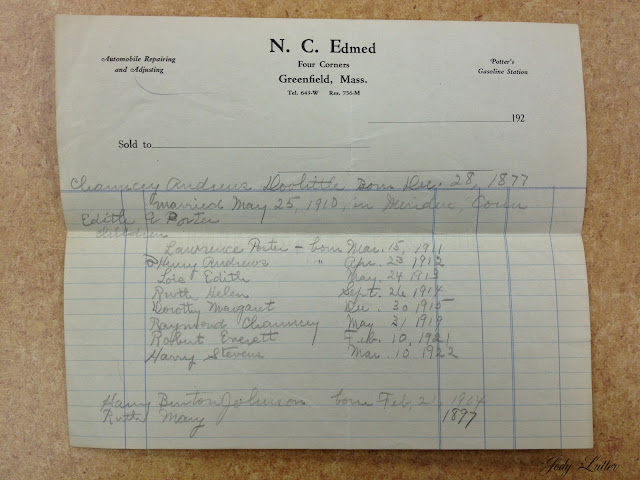 N. C. Edmed
Automobile Repairing
and Adjusting
Four Corners
Greenfield, Mass.
Tel. 643-W Res. 756-M
Potter's
Gasoline Station
192
Sold to
Chauncey Andrews Doolittle Born Dec. 28, 1877
married May 25, 1910, in Meriden, Conn
Edith E Porter
Children
Lawrence Porter - born Mar. 15, 1911
Henry Andrews " Apr. 23 1912
Lois Edith May 24 1913
Ruth Helen Sept. 26 1914
Dorothy Margaret Dec. 30 1915
Raymond Chauncey May 31 1919
Robert Everett Feb. 10, 1921
Harry Stevens Mar. 10 1922
Harry Burton Johnson born Feb. 1904
Ruth Mary 1897
Jody Lutter